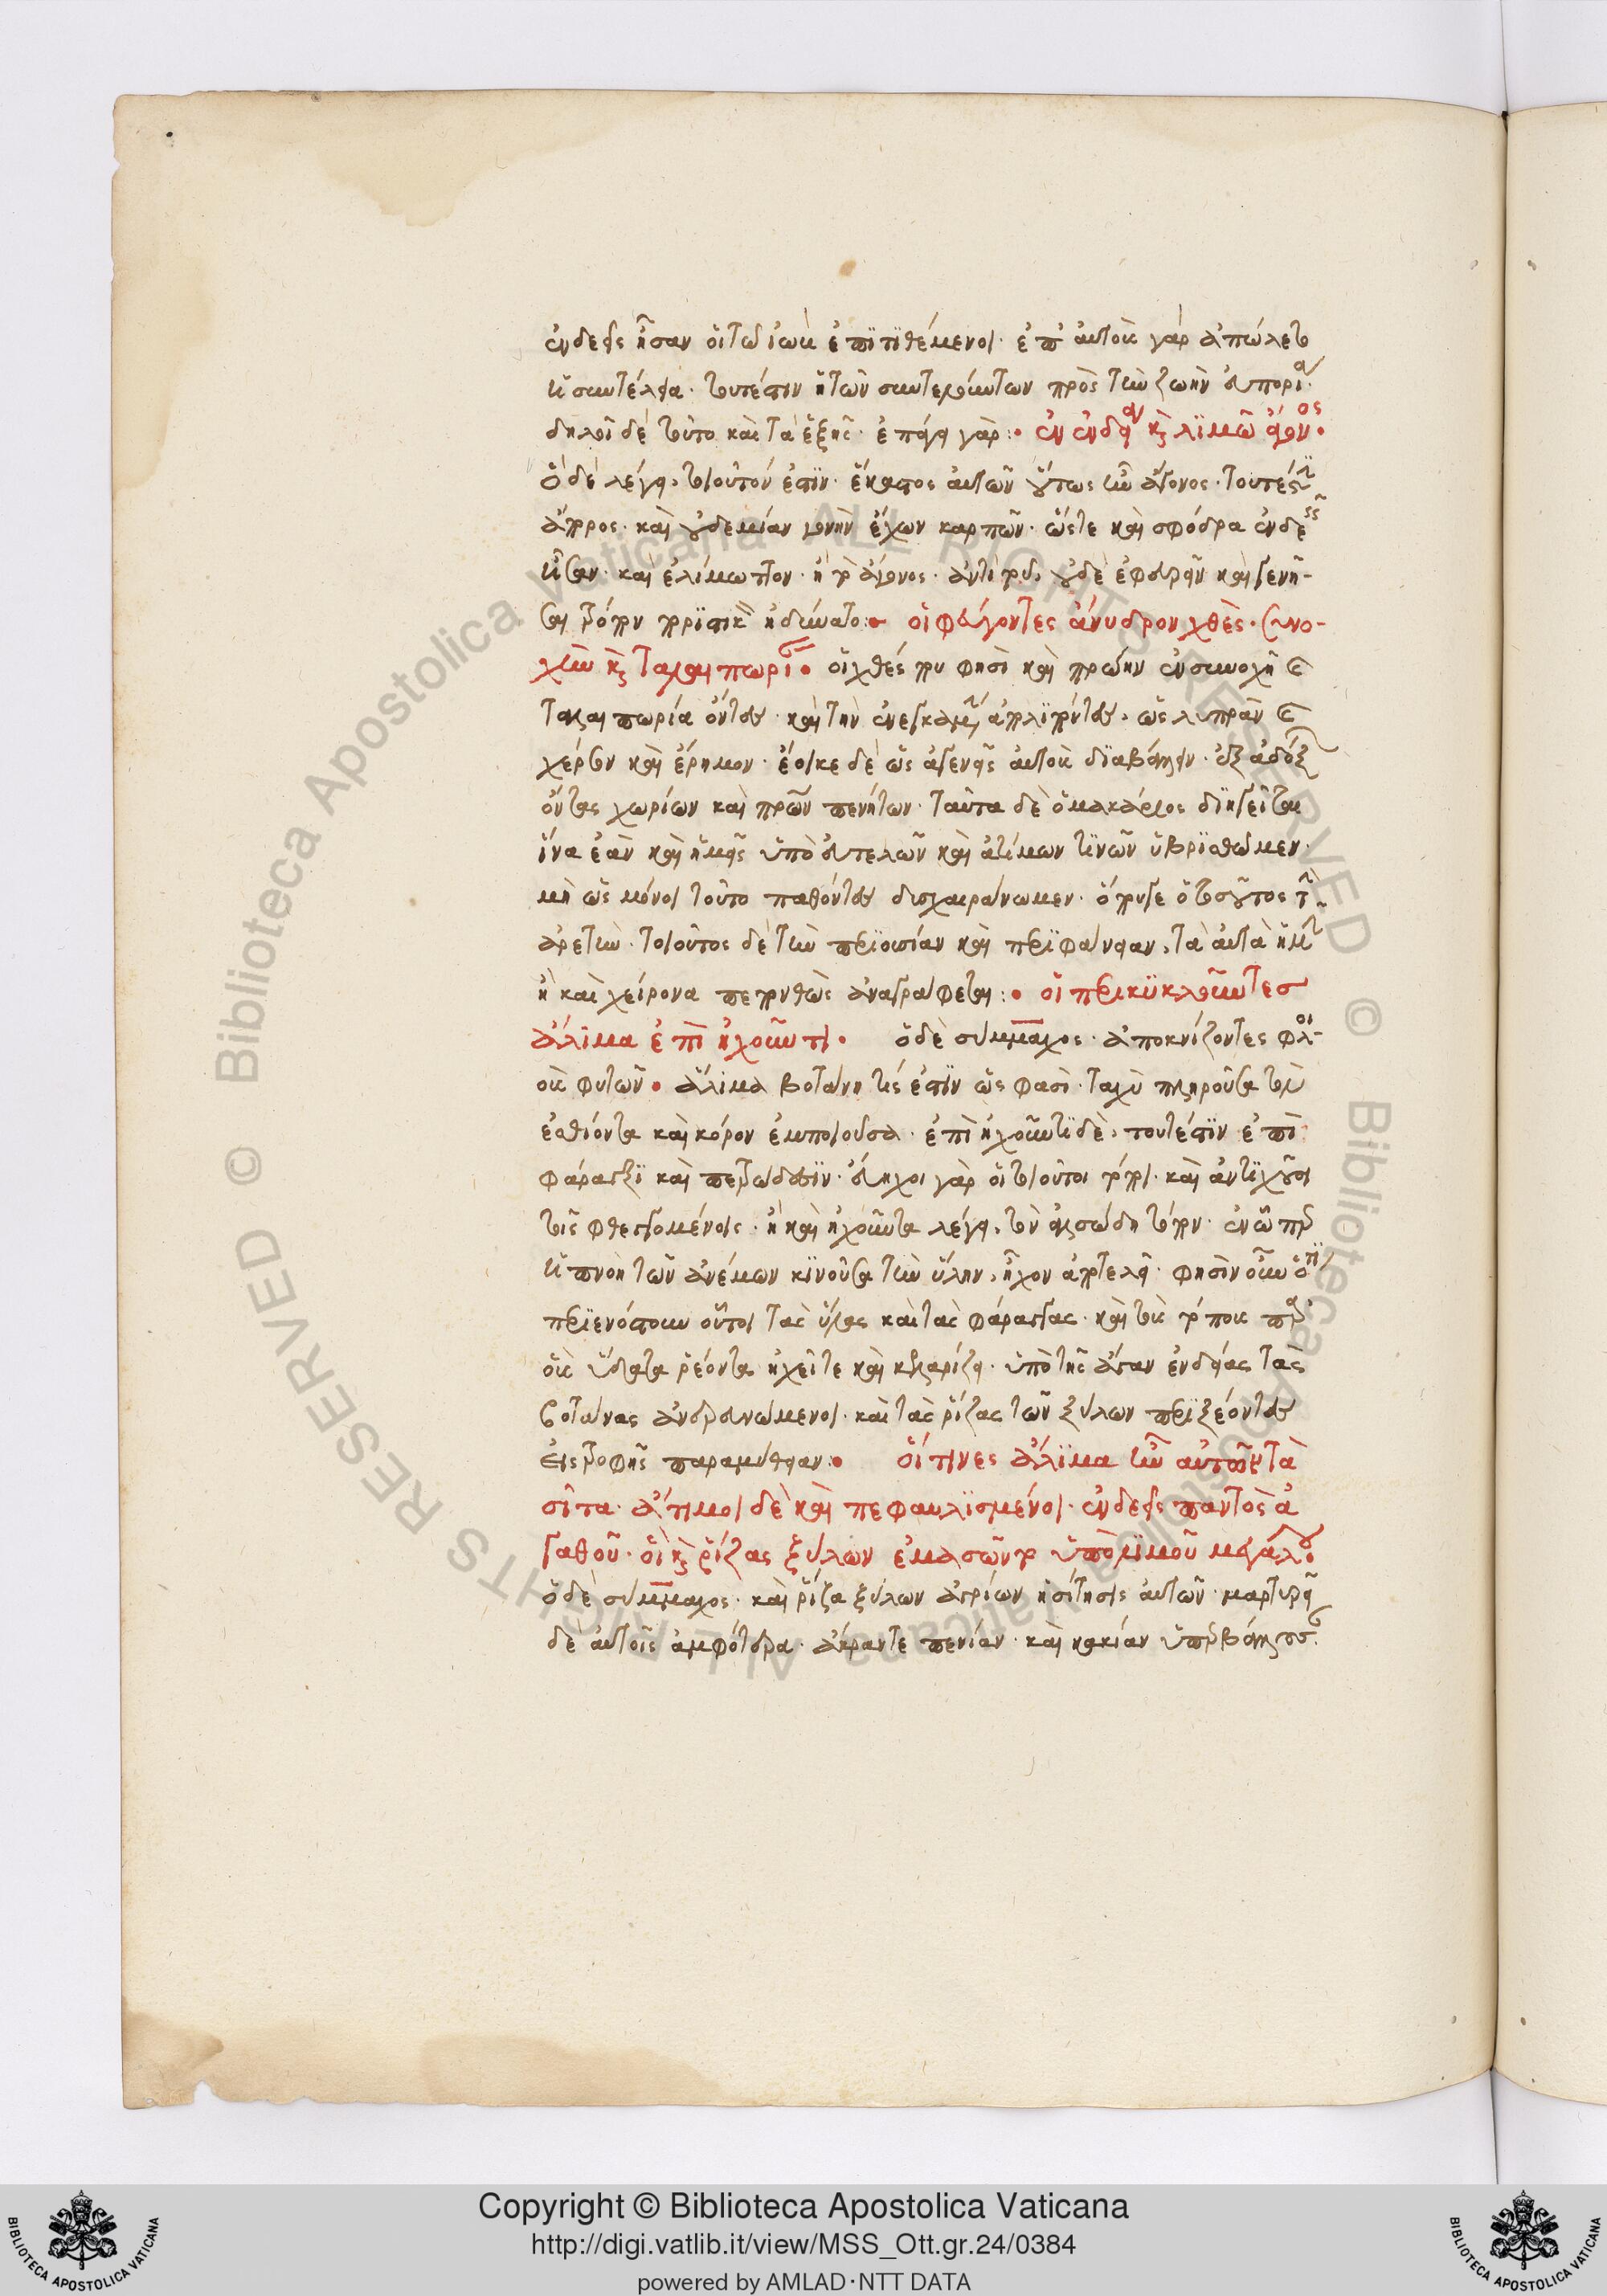 ἐνδεεῖς ἦσαν οἱ τῶ ἰὼβ ἐπιτιθέμενοι· ἐπ' αὐτοὺς γὰρ ἀπώλετο
ἡ συντέλεια· τουτέστιν ἡ τῶν συντελούντων πρὸς τὴν ζωὴν εὐπορία·
δηλοῖ δὲ τοῦτο καὶ τὰ ἑξῆς· ἐπάγει γάρ: ἐν ἐνδείᾳ καὶ λιμῶ ἄγονος·
ὃ δὲ λέγει, τοιοῦτόν ἐστιν· ἕκαστος αὐτῶν οὕτως ἦν ἄγονος· τουτέστιν
ἄπορος· καὶ οὐδεμίαν γονὴν ἔχων καρπῶν· ὥστε καὶ σφόδρα ἐνδεεῖς
ἦσαν· καὶ ἐλίμωττον· ἢ τὸ ἄγονος· ἀντὶ τοῦ, οὐδὲ ἐφευρεῖν καὶ γεννῆ-
σαι πόρον ποριστικὸν ἠδύνατο: οἱ φεύγοντες ἄνυδρον χθὲς· συνο-
χὴν καὶ ταλαιπωρίαν· οἱ χθές που φησὶ καὶ πρώην ἐν συνοχῆ καὶ
ταλαιπωρία ὄντες· καὶ τὴν ἐνεγκαμένην ἀπολιπόντες, ὡς λυπρὰν καὶ
χέρσον καὶ ἔρημον· ἔοικε δὲ ὡς ἀγενεῖς αὐτοὺς διαβάλλειν· ἐξ ἀδόξων
ὄντας χωρίων καὶ πρώην πενήτων· ταῦτα δὲ ὁ μακάριος διηγεῖται
ἵνα ἐὰν καὶ ἡμεῖς ὑπὸ εὐτελῶν καὶ ἀτίμων τινῶν ὑβρισθῶμεν·
μὴ ὡς μόνοι τοῦτο παθόντες δυσχεραίνωμεν· ὅπου γε ὁ τοσοῦτος τὴν
ἀρετὴν· τοιοῦτος δὲ τὴν περιουσίαν καὶ περιφάνειαν, τὰ αὐτὰ ἡμῖν
ἢ καὶ χείρονα πεπονθὼς ἀναγράφεται: οἱ περικυκλοῦντες
ἄλιμα ἐπὶ ἠχοῦντι· ὁ δὲ σύμμαχος· ἀποκνίζοντες φλοι-
οὺς φυτῶν· ἄλιμα βοτάνη τίς ἐστιν ὥς φασι· ταχὺ πληροῦσα τὸν
ἐσθίοντα καὶ κόρον ἐμποιοῦσα· ἐπὶ ἠχοῦντι δὲ, τουτέστιν ἐπὶ
φάραγξι καὶ πετρώδεσιν· εὔηχοι γὰρ οἱ τοιοῦτοι τόποι· καὶ ἀντηχοῦσι
τοῖς φθεγγομένοις· ἢ καὶ ἠχοῦντα λέγει, τὸν ἀλσώδη τόπον· ἐν ᾧ περ
ἡ πνοὴ τῶν ἀνέμων κινοῦσα τὴν ὕλην, ἦχον ἀποτελεῖ· φησὶν οὖν ὅτι
περιενόστουν οὗτοι τὰς ὕλας καὶ τὰς φάραγγας· καὶ τοὺς τόπους παρ'
οὓς ὕδατα ῥέοντα ἠχεῖ τε καὶ κελαρίζει· ὑπὸ τῆς ἄγαν ἐνδείας τὰς
βοτάνας ἀνερευνώμενοι· καὶ τὰς ῥίζας τῶν ξύλων περιξέοντες
εἰς τροφῆς παραμυθίαν: οἵτινες ἄλιμα ἦν αὐτῶν τὰ
σῖτα· ἄτιμοι δὲ καὶ πεφαυλισμένοι· ἐνδεεῖς παντὸς ἀ
γαθοῦ· οἳ καὶ ῥίζας ξύλων ἐμασῶντο ὑπὸ λιμοῦ μεγάλου
ὁ δὲ σύμμαχος· καὶ ῥίζα ξύλων ἀγρίων ἡ σίτησις αὐτῶν· μαρτυρεῖ
δὲ αὐτοῖς ἀμφότερα· ἄκραν τε πενίαν· καὶ κακίαν ὑπερβάλλουσαν·